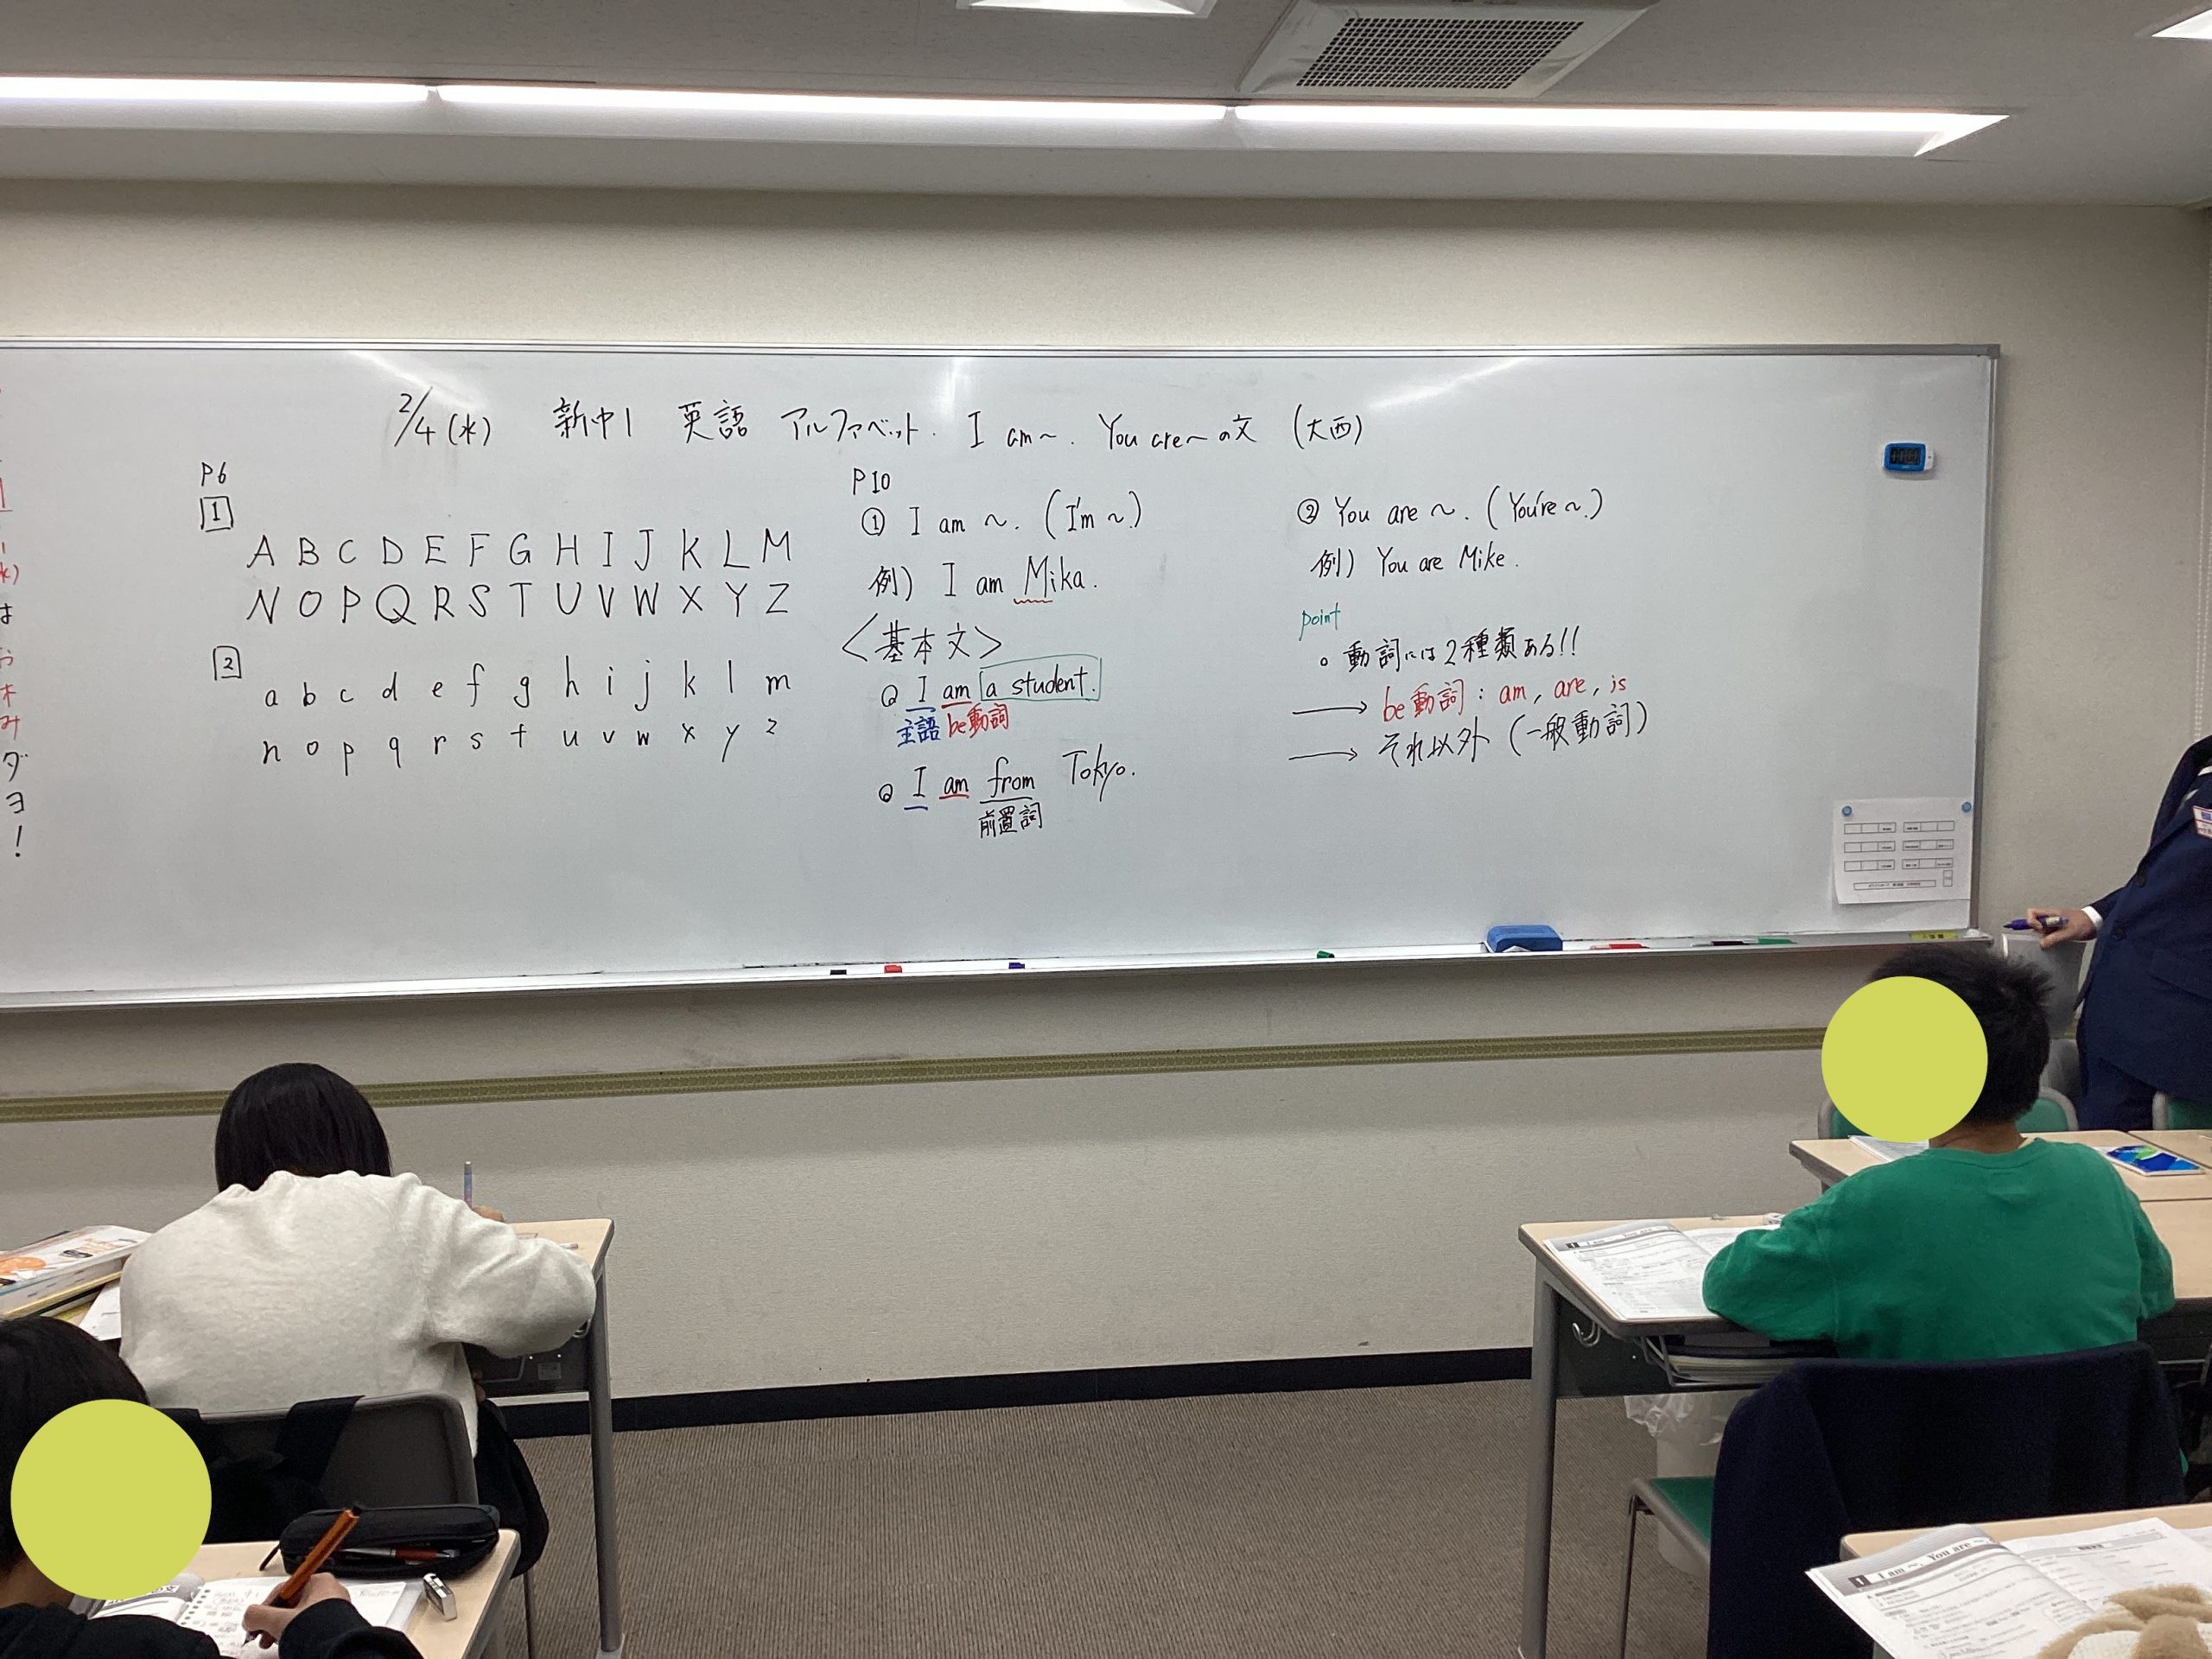 2/4(水) 新中1 英語 アルファベット. I am~. You are~の文 (大西)
P6
1
A B C D E F G H I J K L M
N O P Q R S T U V W X Y Z
2
a b c d e f g h i j k l m
n o p q r s t u v w x y z
P10
① I am ~. (I'm ~.)
例) I am Mika.
<基本文>
I am a student.
主語 be動詞
I am from Tokyo.
前置詞
② You are ~. (You're ~.)
例) You are Mike.
point
。動詞には2種類ある!!
→ be動詞: am, are, is
→ それ以外 (一般動詞)
は
お
休
み
ダ
ヨ
!
1 I am ~. You are ~